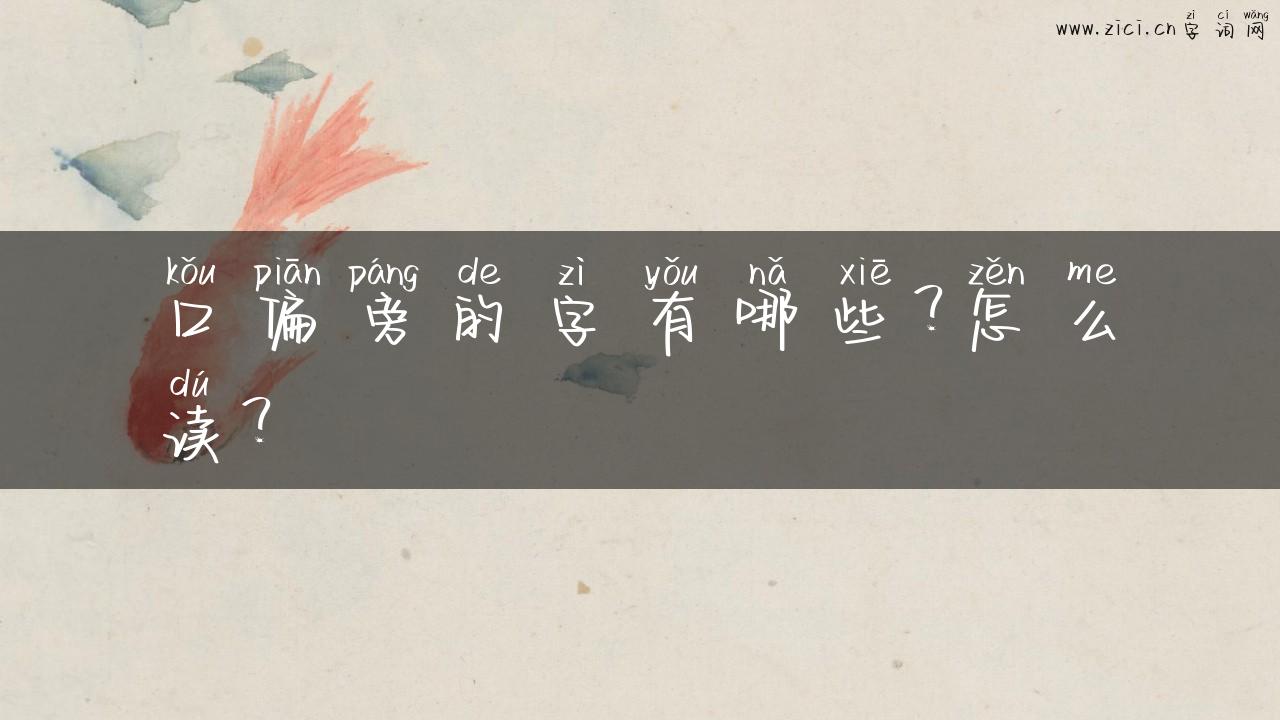 zì cí wǎng
www.zici.cn字词网
kǒu piān páng de zì yǒu nǎ xiē zěn me
口偏旁的字有哪些?怎么
dú
读?